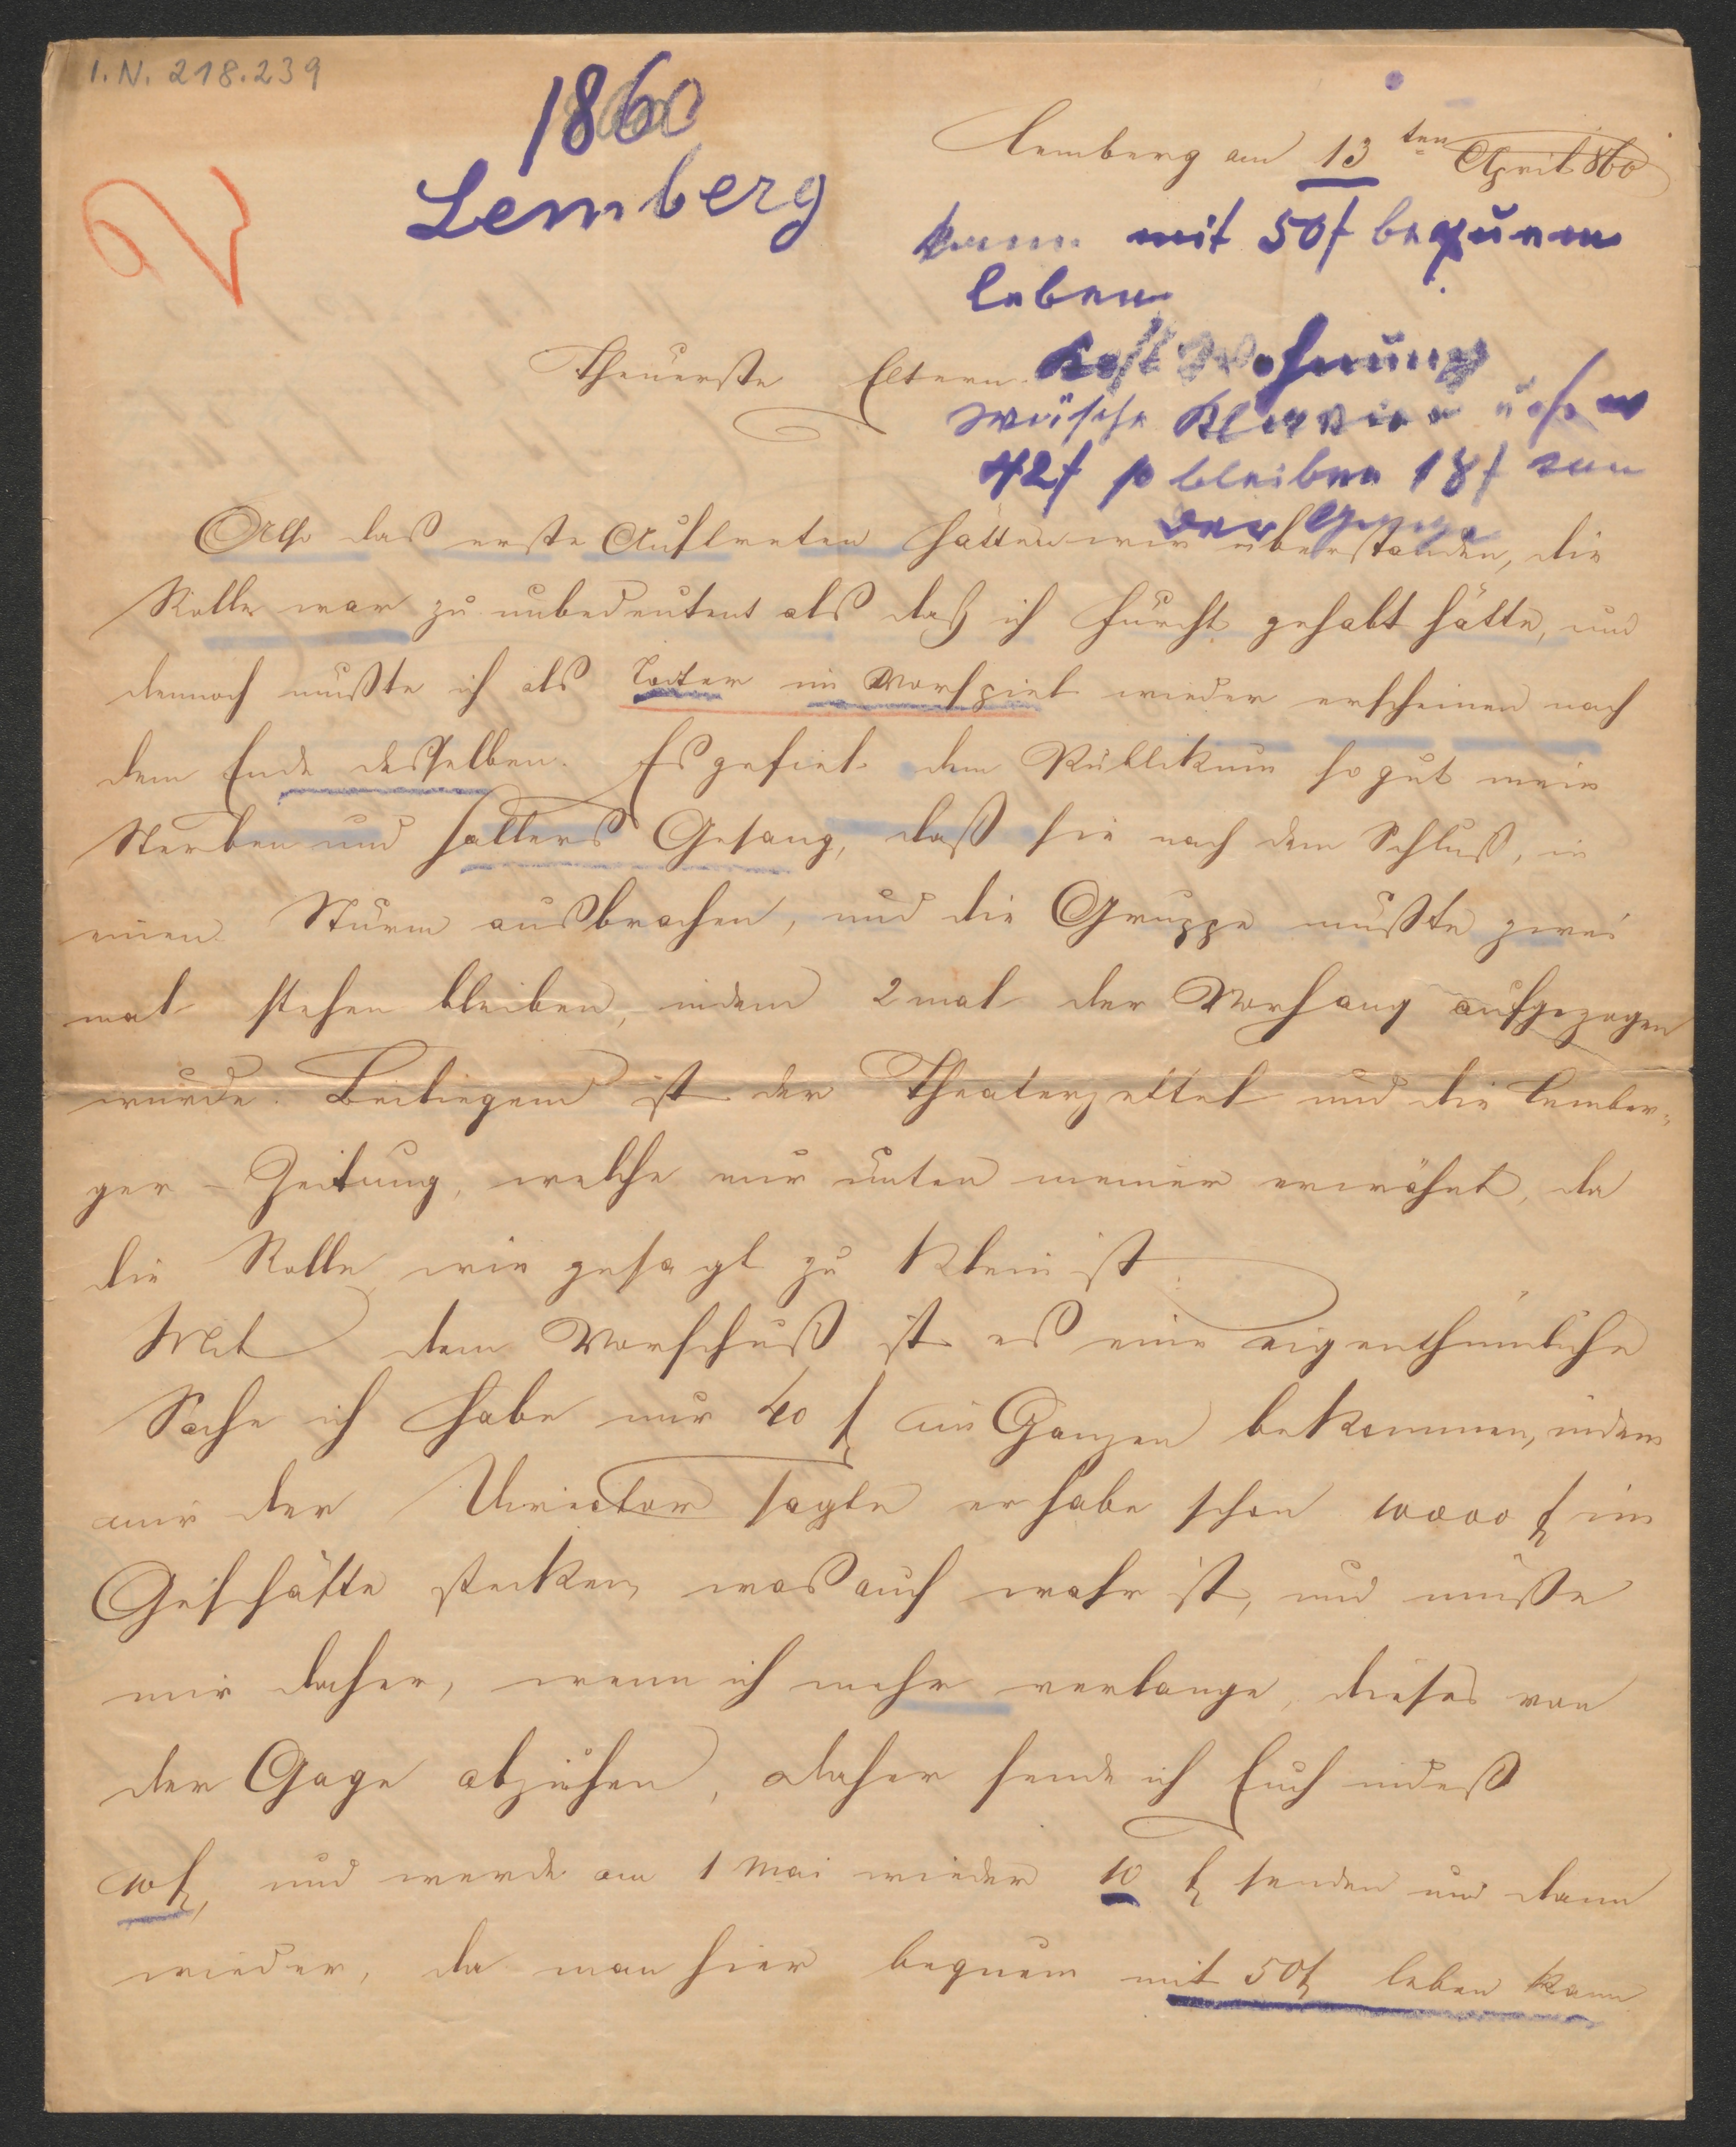 I.N. 218.239
1860
Lemberg
Lemberg am 13ten April 860
kann mit 50f bequem
leben
Kost Wohnung
Wäsche Klavier
42f so bleiben 18f von
der Gage
Theuerste Eltern.
Also das erste Auftreten hätten wir überstanden, die
Rolle war zu unbedeutent als daß ich Furcht gehabt hätte, und
dennoch mußte ich als Todter im Vorspiel wieder erscheinen nach
dem Ende desselben. Es gefiel dem Publikum so gut mein
Sterben und Halters Gesang, daß sie nach dem Schluß, in
einen Sturm ausbrachen, und die Gruppe mußte zwei
mal stehen bleiben, indem 2 mal der Vorhang aufgezogen
wurde. Beiliegend ist der Theaterzettel und die Lember-
ger-Zeitung, welche nur unten meiner erwähnt, da
die Rolle wie gesagt zu klein ist.
Mit dem Vorschuß ist es eine eigenthümliche
Sache ich habe nur 40 f im Ganzen bekommen, indem
mir der Director sagte er habe schon 10000 f im
Geschäfte stecken, was auch wahr ist, und müsse
mir daher, wenn ich mehr verlange, dieses von
der Gage abziehen, daher sende ich Euch indeß
10 f, und werde am 1 Mai wieder 10 f senden und dann
wieder, da man hier bequem mit 50f leben kann